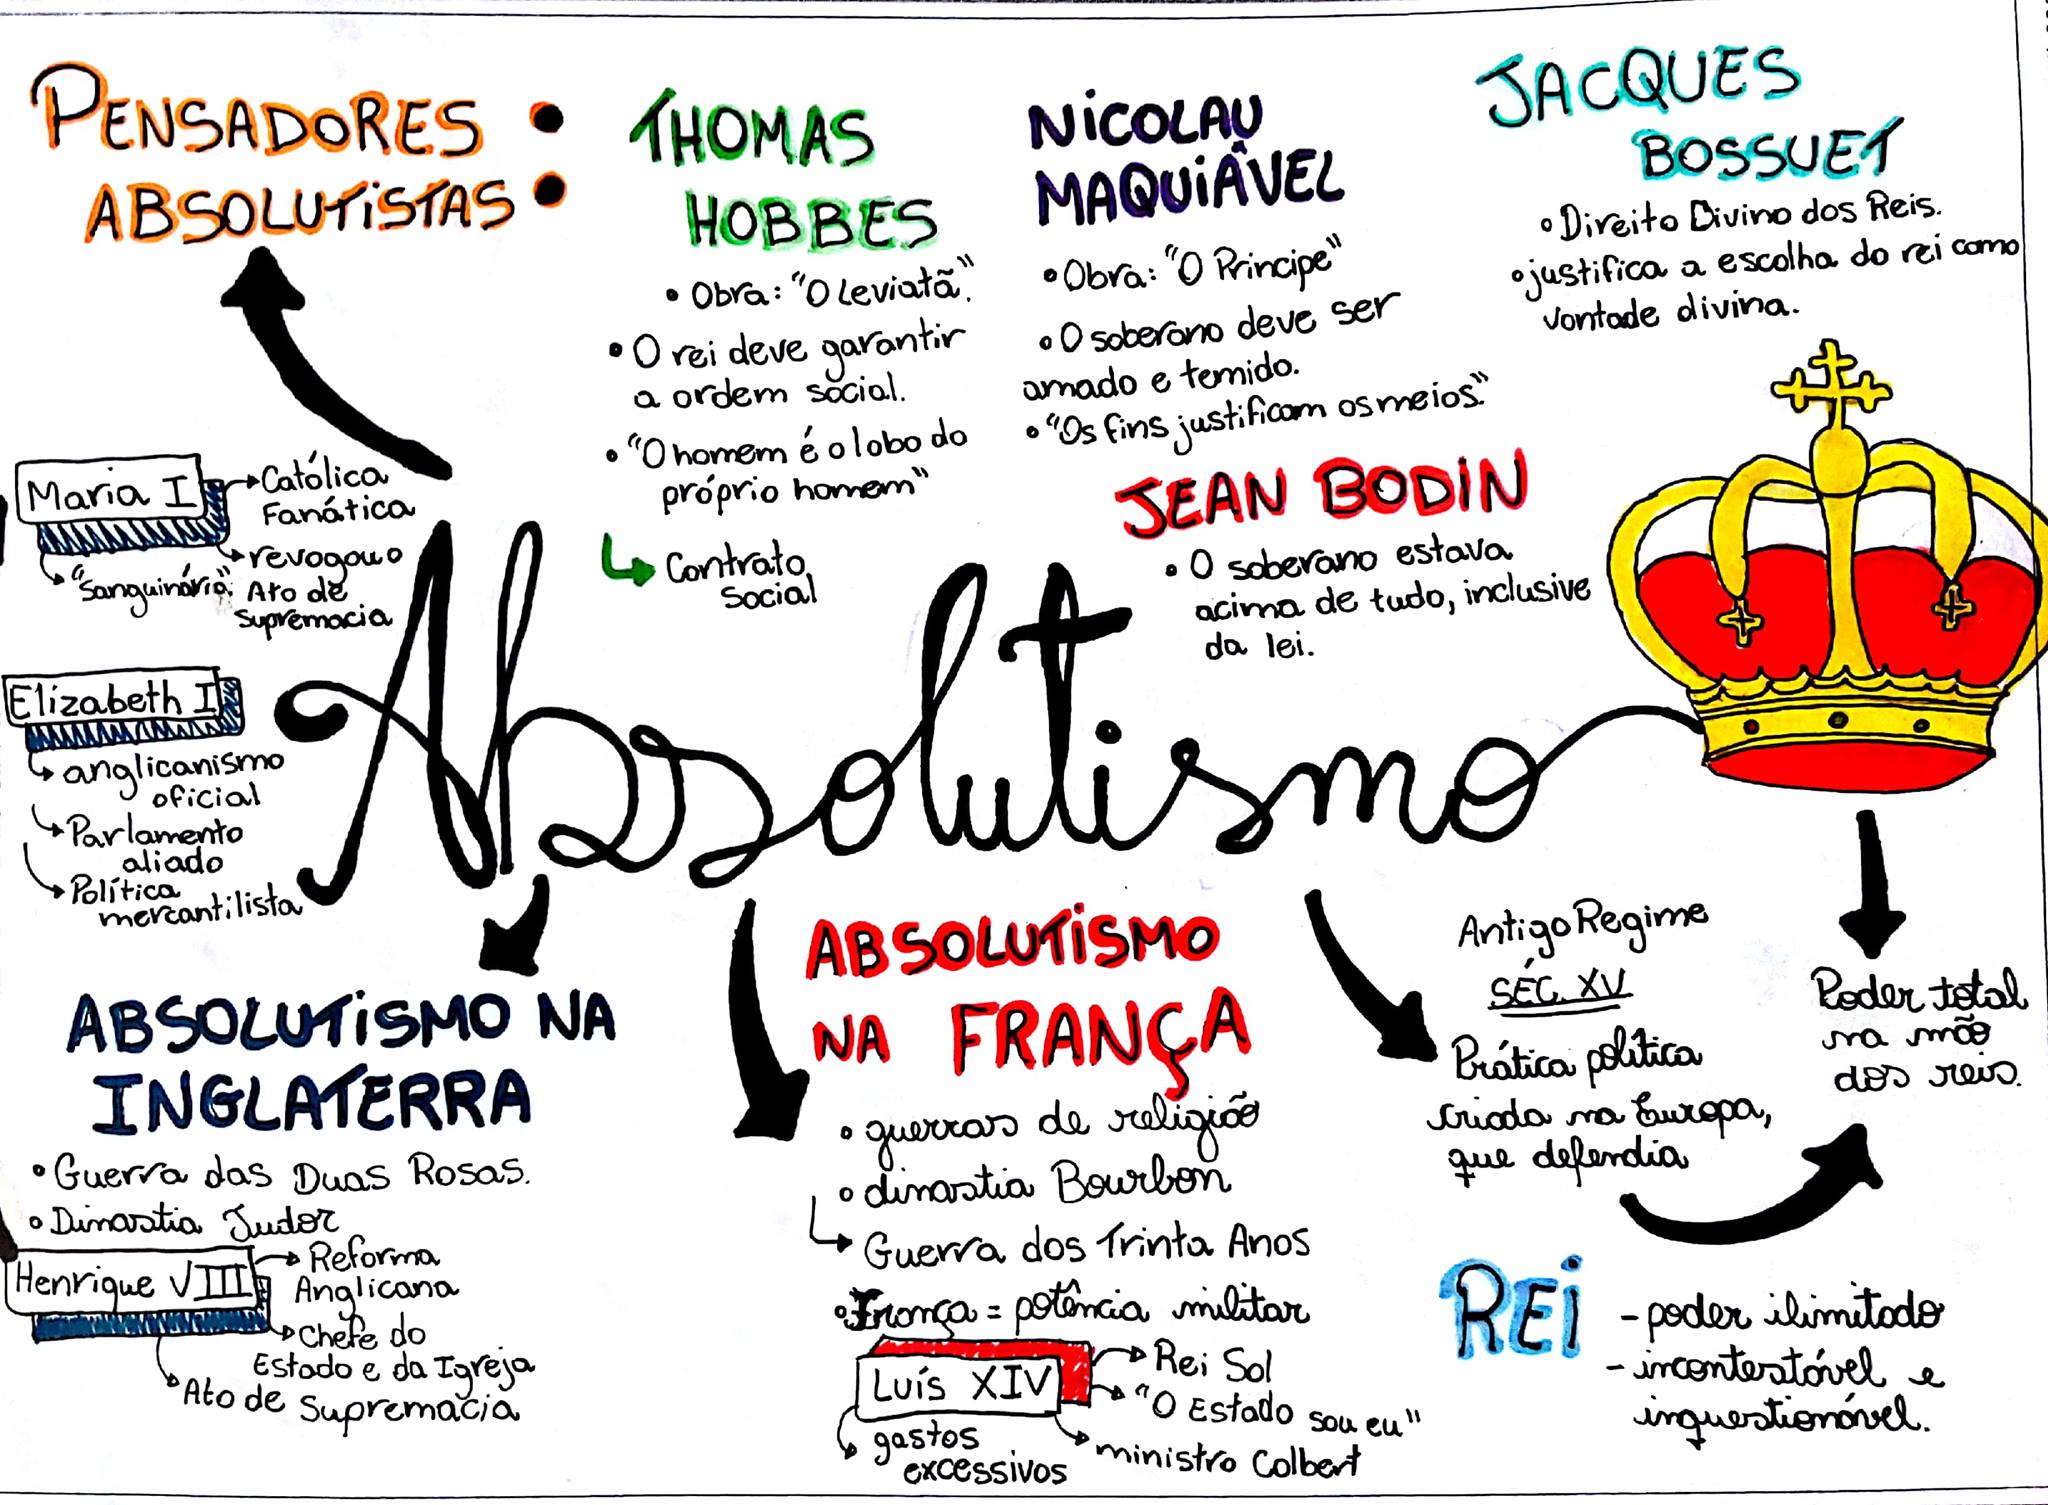 PENSADORES :
ABSOLUTISTAS
THOMAS
HOBBES
• Obra: "O Leviatã".
• O rei deve garantir
a ordem social.
• "O homem é o lobo do
próprio homem"
Contrato
social
NICOLAU
MAQUIÂVEL
• Obra: "O Principe"
• O soberano deve ser
amado e temido.
• "Os fins justificam os meios."
JACQUES
BOSSUET
• Direito Divino dos Reis.
• justifica a escolha do rei como
vontade divina.
JEAN BODIN
• O soberano estava
acima de tudo, inclusive
da lei.
Maria I
Católica
Fanática
revogou o
Ato de
Supremacia
"Sanguinária"
Elizabeth I
anglicanismo
oficial
Parlamento
aliado
Política
mercantilista
Absolutismo
ABSOLUTISMO NA
INGLATERRA
• Guerra das Duas Rosas.
• Dinastia Tudor
Henrique VIII
Reforma
Anglicana
Chefe do
Estado e da Igreja
Ato de Supremacia
ABSOLUTISMO
NA FRANÇA
• guerras de religião
• dinastia Bourbon
Guerra dos Trinta Anos
• França = potência militar
Luís XIV
Rei Sol
"O Estado sou eu"
ministro Colbert
gastos
excessivos
Antigo Regime
SÉC. XV
Prática política
criada na Europa,
que defendia
Poder total
na mão
dos reis.
REI
- poder ilimitado
- incontestável e
inquestionável.